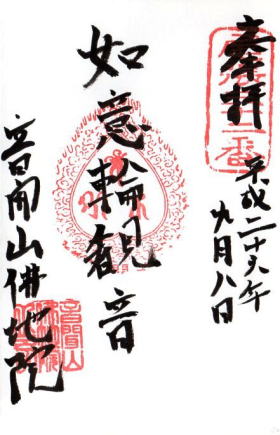 奉拝
平成二十六年
九月八日
如意輪観音
音聞山佛地院
音聞山